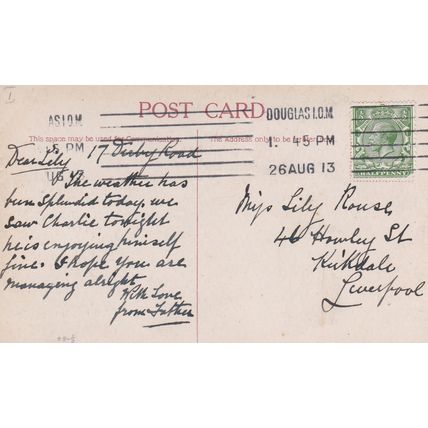 I
AS I.O.M.
.5 PM
UG
DOUGLAS I.O.M.
1. 45 PM
26 AUG 13
HALFPENNY
POST CARD
This space may be used for
The Address only to be
17 Derby Road
Dear Lily
The weather has
been splendid today, we
saw Charlie tonight
he is enjoying himself
fine. I hope you are
managing alright
With Love
from Father
Miss Lily Rouse
46 Howley St
Kirkdale
Liverpool